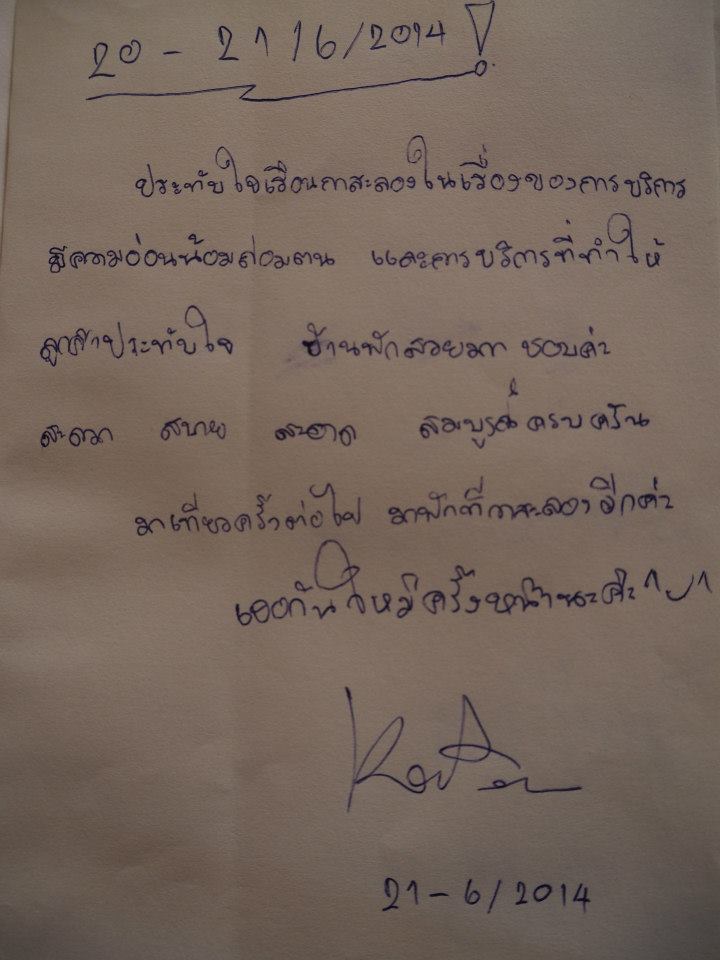 20 - 21 / 6 / 2014 !
ประทับใจเรือนกาสะลองในเรื่องของการบริการ
มีความอ่อนน้อมถ่อมตน และการบริการที่ทำให้
ลูกค้าประทับใจ บ้านพักสวยมาก ชอบค่ะ
สะดวก สบาย สะอาด สมบูรณ์ครบครัน
มาเที่ยวครั้งต่อไป มาพักที่กาสะลองอีกค่ะ
เจอกันใหม่ครั้งหน้านะคะ ^-^
21 - 6 / 2014